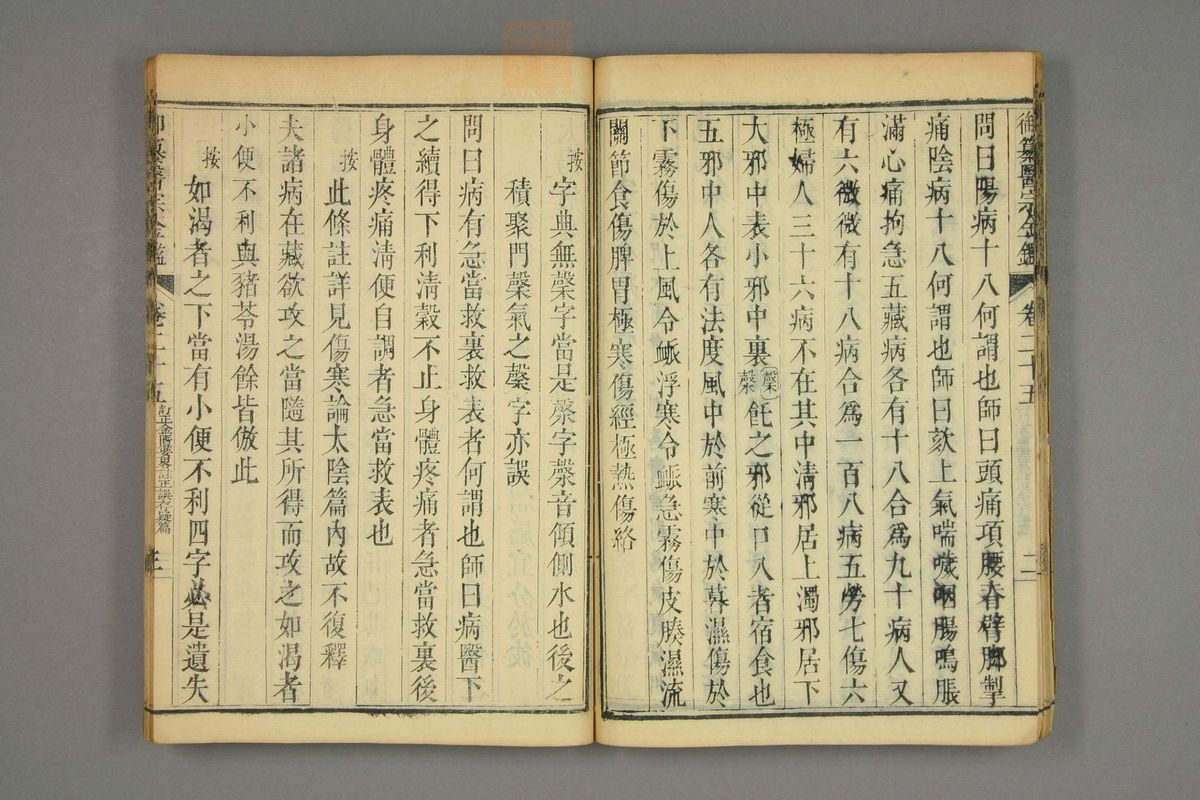 御纂醫宗金鑑 卷二十五 二
問曰陽病十八何謂也師曰頭痛項腰脊臂脚掣
痛陰病十八何謂也師曰欬上氣喘噦咽腸鳴脹
滿心痛拘急五藏病各有十八合爲九十病人又
有六微微有十八病合爲一百八病五勞七傷六
極婦人三十六病不在其中淸邪居上濁邪居下
大邪中表小邪中裏
飥之邪從口入者宿食也
五邪中人各有法度風中於前寒中於暮濕傷於
下霧傷於上風令脈浮寒令脈急霧傷皮腠濕流
關節食傷脾胃極寒傷經極熱傷絡
按字典無字當是字音傾側水也後之
積聚門氣之字亦誤
問曰病有急當救裏救表者何謂也師曰病醫下
之續得下利淸穀不止身體疼痛者急當救裏後
身體疼痛淸便自調者急當救表也
按此條註詳見傷寒論太陰篇內故不復釋
夫諸病在藏欲攻之當隨其所得而攻之如渴者
小便不利與豬苓湯餘皆倣此
按如渴者之下當有小便不利四字必是遺失
御纂醫宗金鑑 卷二十五 訂正金匱要略註正誤存疑篇 三